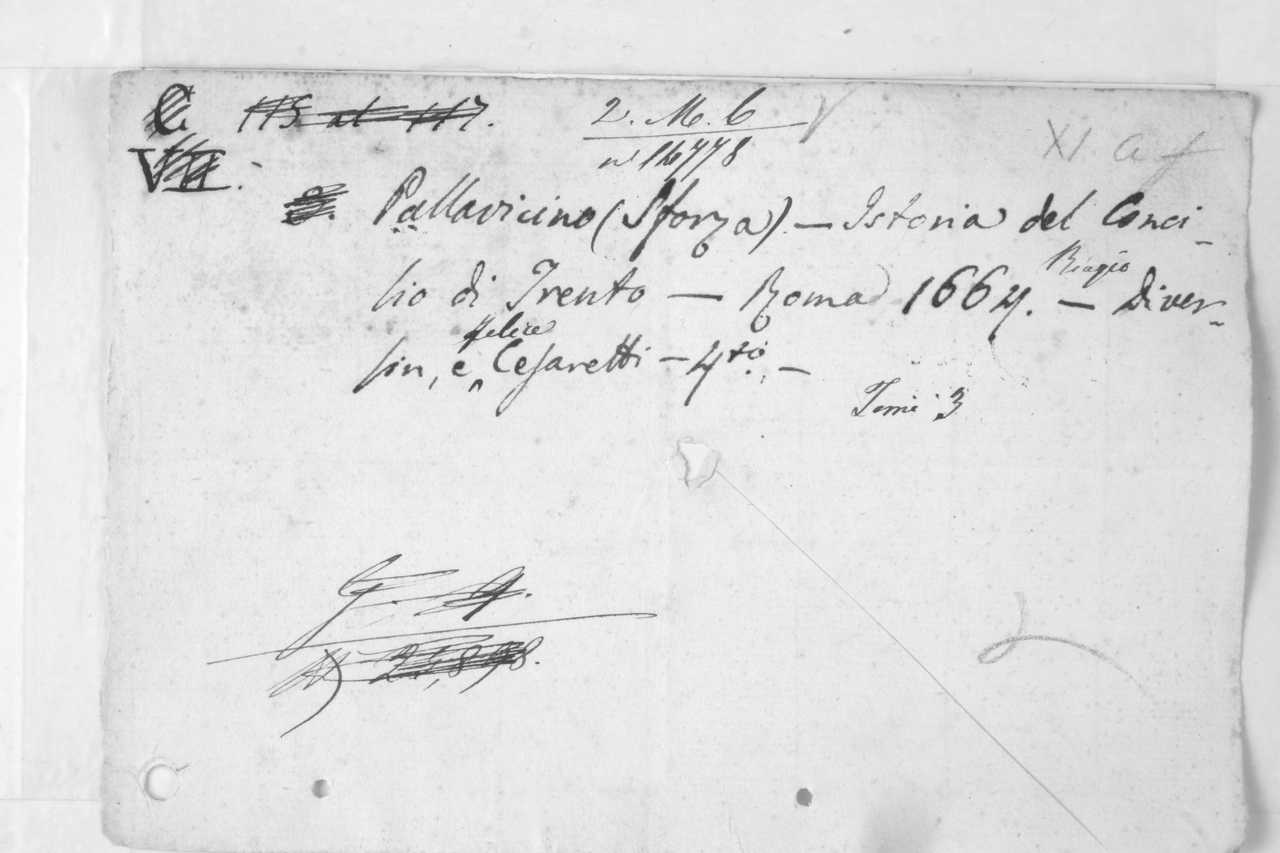 C. 115 al 117. 2. M. 6
VII. n 14778 XI. a f
Pallavicino (Sforza). — Istoria del Conci-
lio di Trento — Roma 1664. — Biagio Diver-
sin, e felice Cesaretti — 4to. —
Tomi 3